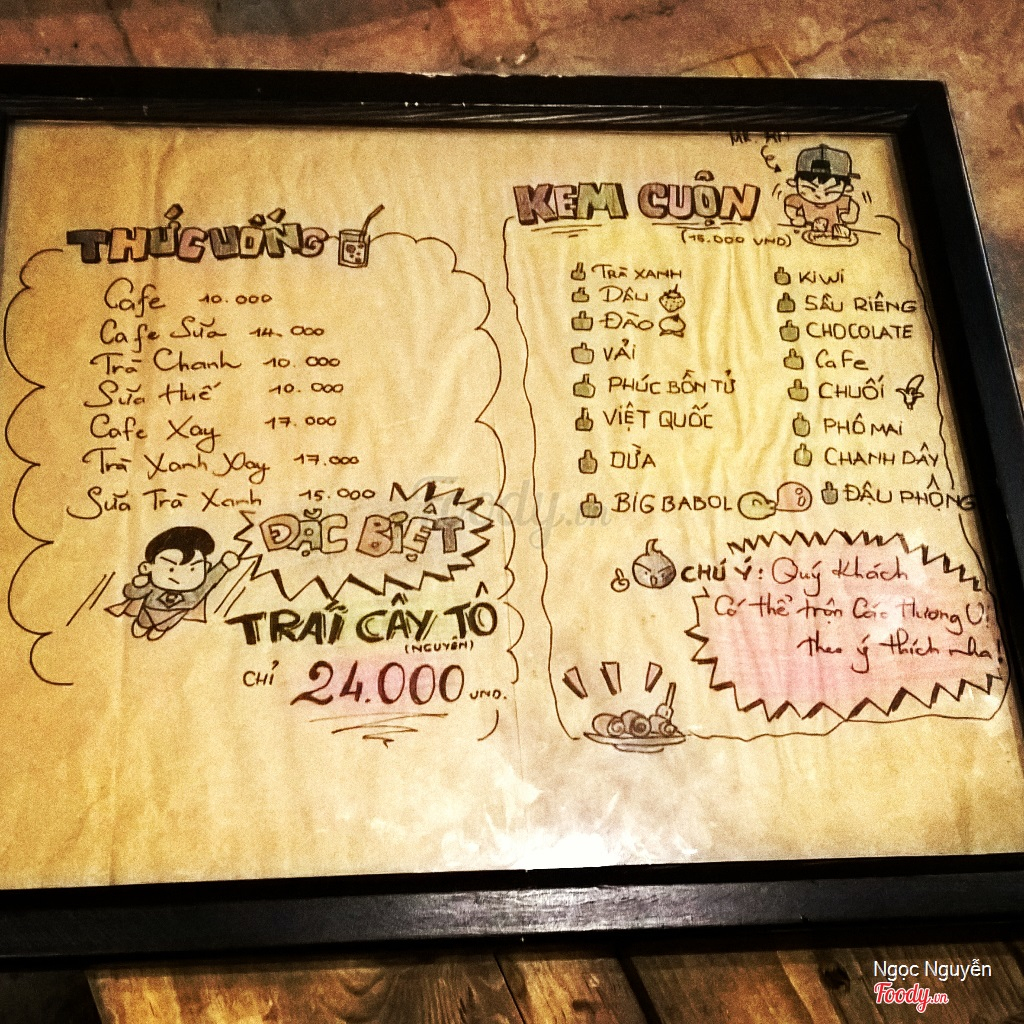 THỨC UỐNG
Cafe 10.000
Cafe Sữa 14.000
Trà Chanh 10.000
Sữa Huế 10.000
Cafe Xay 17.000
Trà Xanh Xay 17.000
Sữa Trà Xanh 15.000
ĐẶC BIỆT
TRÁI CÂY TÔ
(NGUYÊN)
CHỈ 24.000 VND.
MR.
KEM CUỘN
(15.000 VND)
TRÀ XANH
DÂU
ĐÀO
VẢI
PHÚC BỒN TỬ
VIỆT QUỐC
DỪA
BIG BABOL
KIWI
SẦU RIÊNG
CHOCOLATE
Cafe
CHUỐI
PHÔ MAI
CHANH DÂY
ĐẬU PHỘNG
CHÚ Ý: Quý Khách
Có thể trộn Các Hương Vị
theo ý thích nha!
Foody.vn
Ngọc Nguyễn
Foody.vn